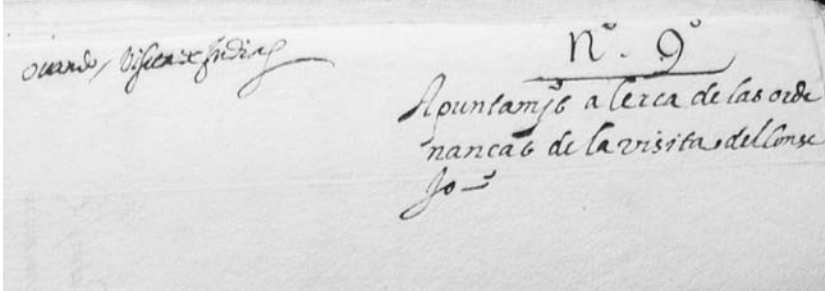 ouando, Visita de Indias
nº. 9º
Apuntamjºs a cerca de las orde
nancas de la visita del Conse
jo